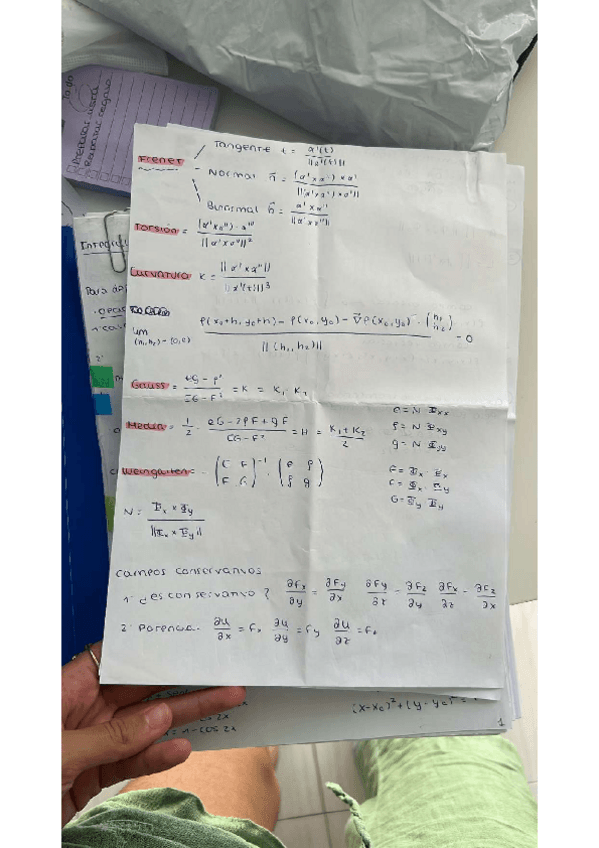 To do
Preparar
Repasar
Integral
Para
Frenet
Tangente t = α'(t) / ||α'(t)||
Normal n⃗ = (α' x α'') x α' / ||(α' x α'') x α'||
Binormal b⃗ = α' x α'' / ||α' x α''||
Torsión = (α' x α'') · α''' / ||α' x α''||²
Curvatura κ = ||α' x α''|| / ||α'(t)||³
lim (h₁,h₂)→(0,0) f(x₀+h₁, y₀+h₂) - f(x₀,y₀) - ∇⃗f(x₀,y₀) · (h₁ h₂) / ||(h₁,h₂)|| = 0
Gauss = eg - f² / EG - F² = K = K₁ · K₂
Media = 1/2 · eG - 2fF + gE / EG - F² = H = K₁ + K₂ / 2
e = N Φxx
f = N Φxy
g = N Φyy
Weingarten = - (E F F G)⁻¹ · (e f f g)
E = Φx · Φx
F = Φx · Φy
G = Φy Φy
N = Φx x Φy / ||Φx x Φy||
Campos conservativos
1· ¿es conservativo? ∂Fx/∂y = ∂Fy/∂x ∂Fy/∂z = ∂Fz/∂y ∂Fx/∂z = ∂Fz/∂x
2· Potencial ∂u/∂x = Fx ∂u/∂y = Fy ∂u/∂z = Fz
(x-x₀)² + (y-y₀)²
1-cos 2x
1